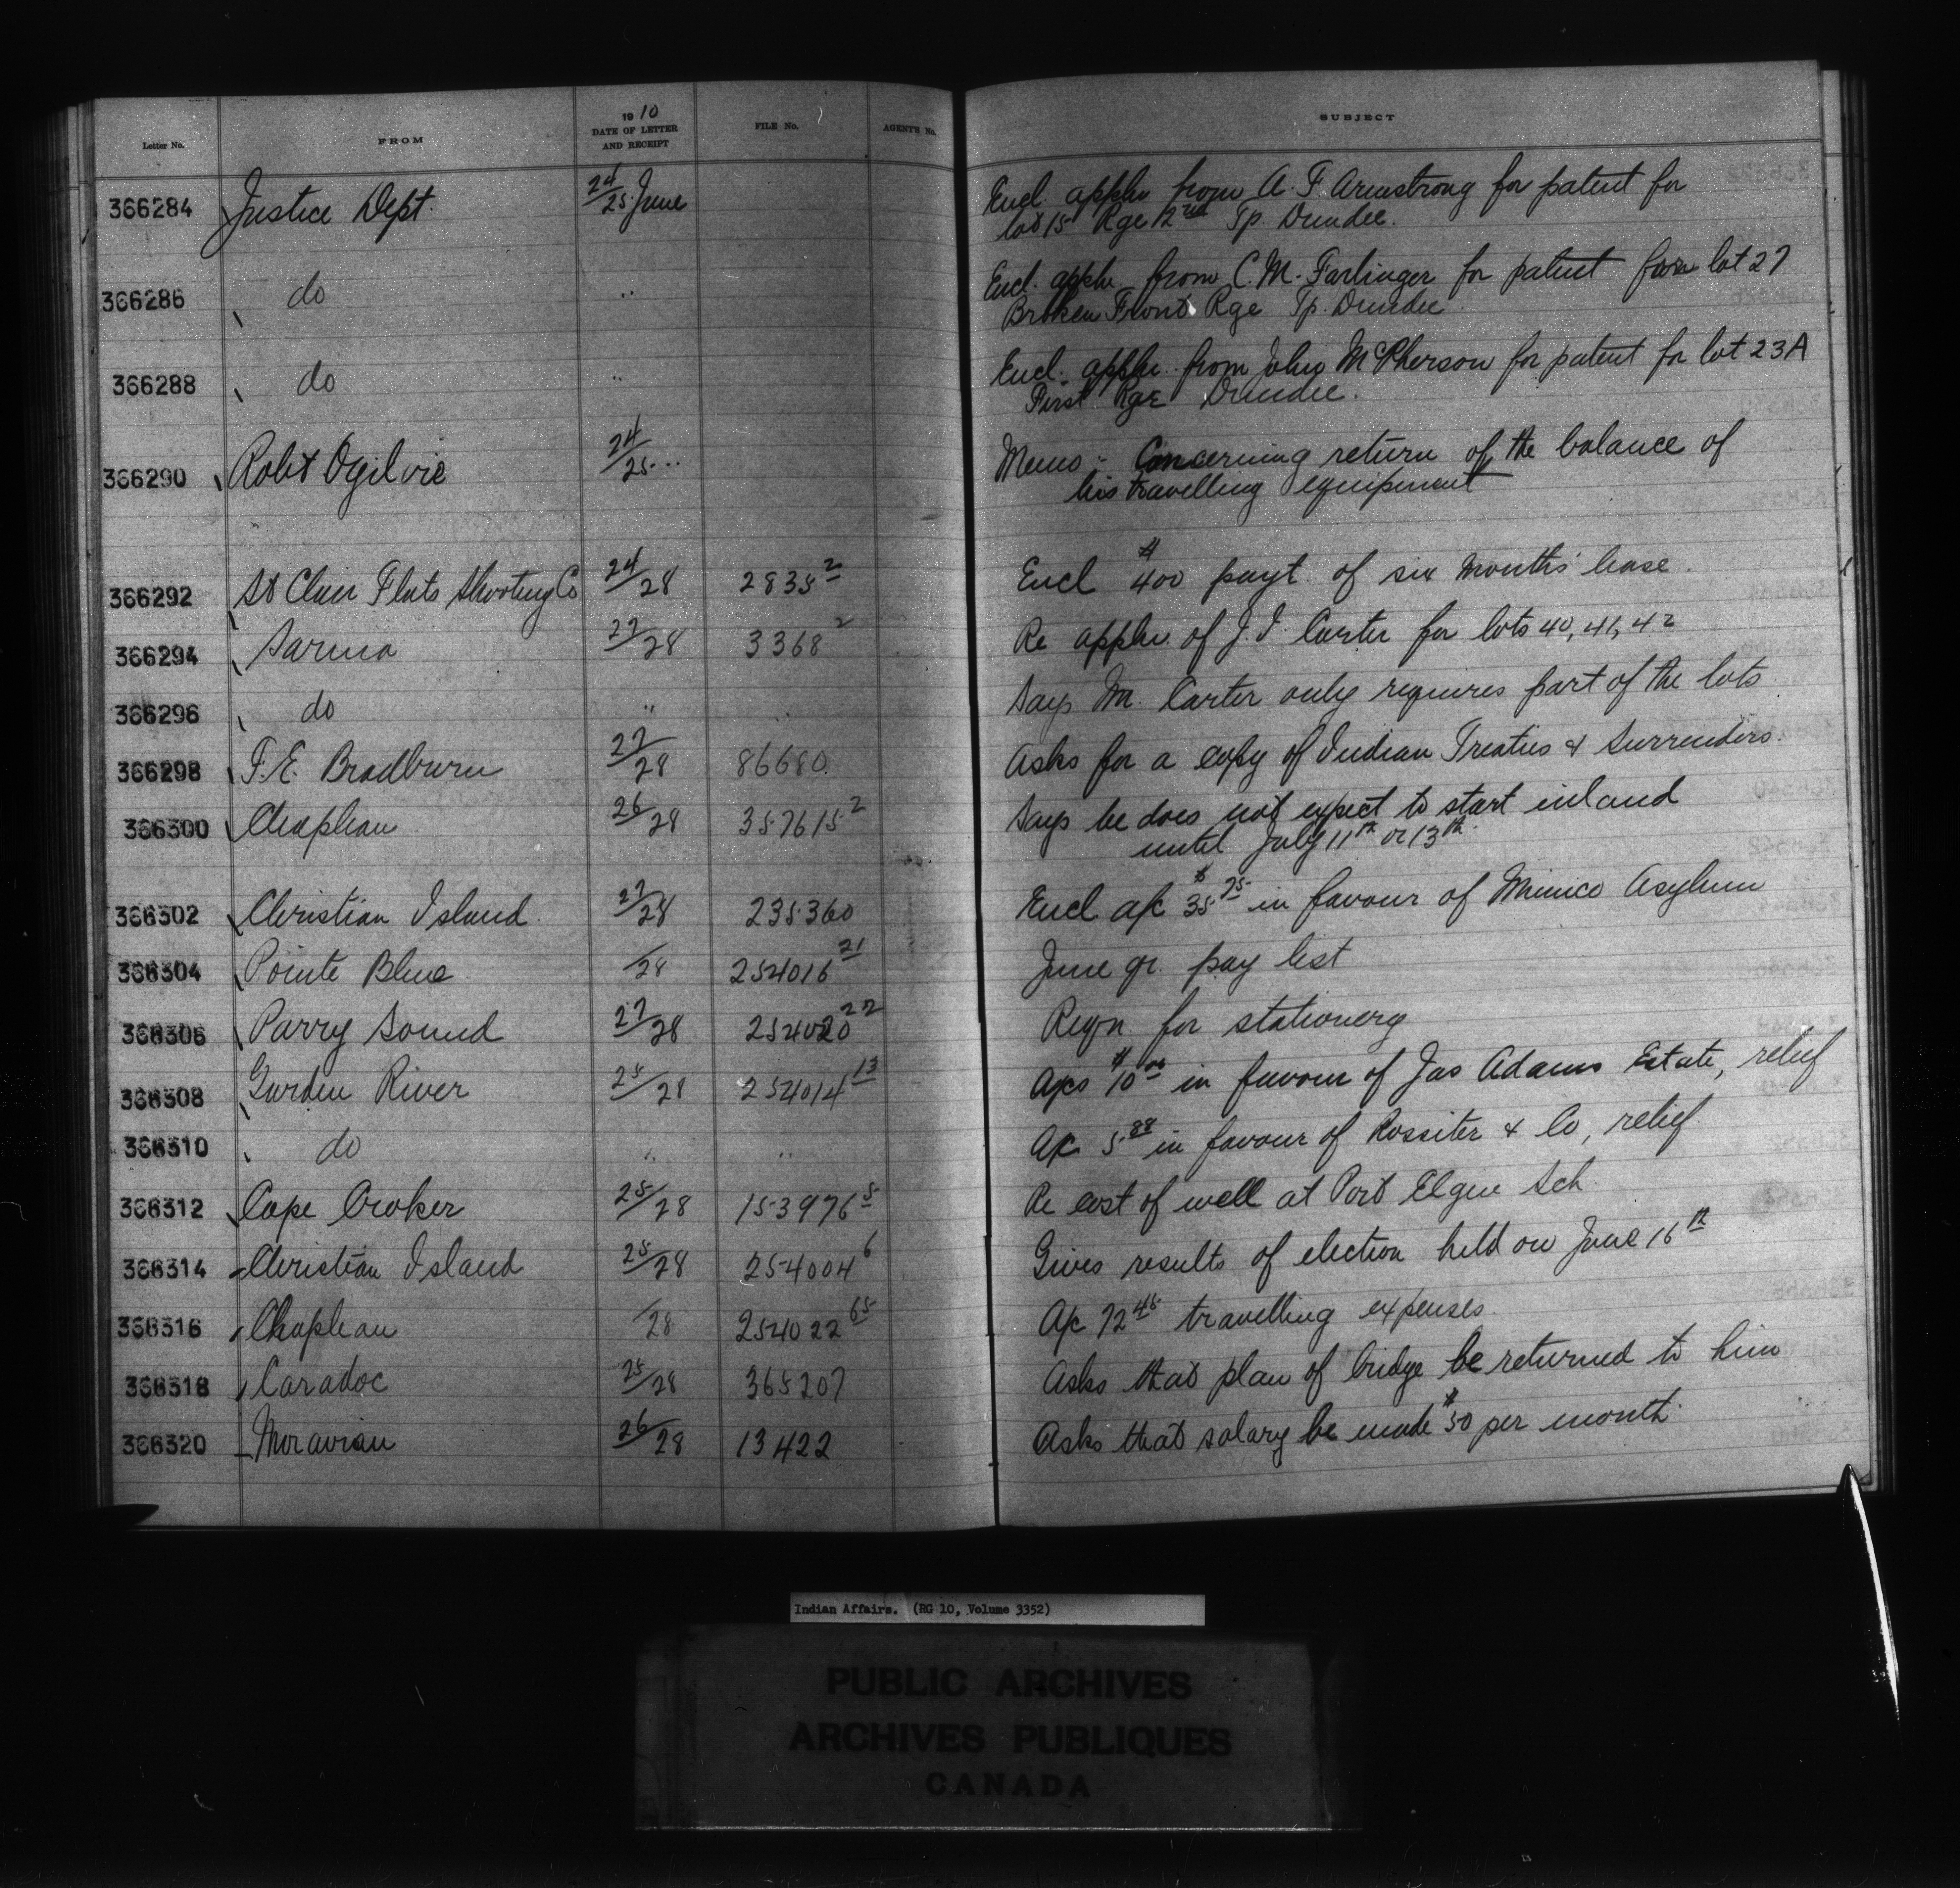 Letter No. FROM 1910 DATE OF LETTER AND RECEIPT FILE No. AGENTS No. SUBJECT
366284 Justice Dept. 24/25 June Encl. appln from A. F. Armstrong for patent for
lot 15 Rge 2nd Tp. Dundee.
366286 do " Encl. appln from C. M. Farlinger for patent for lot 27
Broken Front Rge Tp. Dundee.
366288 do " Encl. appln. from John McPherson for patent for lot 23A
First Rge Dundee.
366290 Robt Ogilvie 24/25 " Memo :- Concerning return of the balance of
his travelling equipment
366292 St Clair Flats Shooting Co 24/28 2835 2 Encl $400 payt. of six months' lease.
366294 Sarnia 27/28 3368 2 Re appln. of J. I. Carter for lots 40, 41, 42
366296 do " " Says M. Carter only requires part of the lots
366298 F. E. Bradburn 27/28 86680 Asks for a copy of Indian Treaties & Surrenders.
366300 Chapleau 26/28 357615 2 Says he does not expect to start inland
until July 11th or 13th.
366302 Christian Island 27/28 235360 Encl a/c $35 75 in favour of Mimico Asylum
366304 Pointe Bleue /28 254016 21 June qr. pay list
366306 Parry Sound 27/28 254020 22 Reqn for stationery
366308 Garden River 25/28 254014 13 A/cs $10 00 in favour of Jas Adams Estate, relief
366310 do " " A/c 5 88 in favour of Rossiter & Co, relief.
366312 Cape Croker 25/28 153976 5 Re cost of well at Port Elgin Sch
366314 Christian Island 25/28 254004 6 Gives results of election held on June 16th
366316 Chapleau /28 254022 65 A/c 72 45 travelling expenses.
366318 Caradoc 25/28 365207 Asks that plan of bridge be returned to him
366320 Moravian 26/28 13422 Asks that salary be made $50 per month.
Indian Affairs. (RG 10, Volume 3352)
PUBLIC ARCHIVES
ARCHIVES PUBLIQUES
CANADA